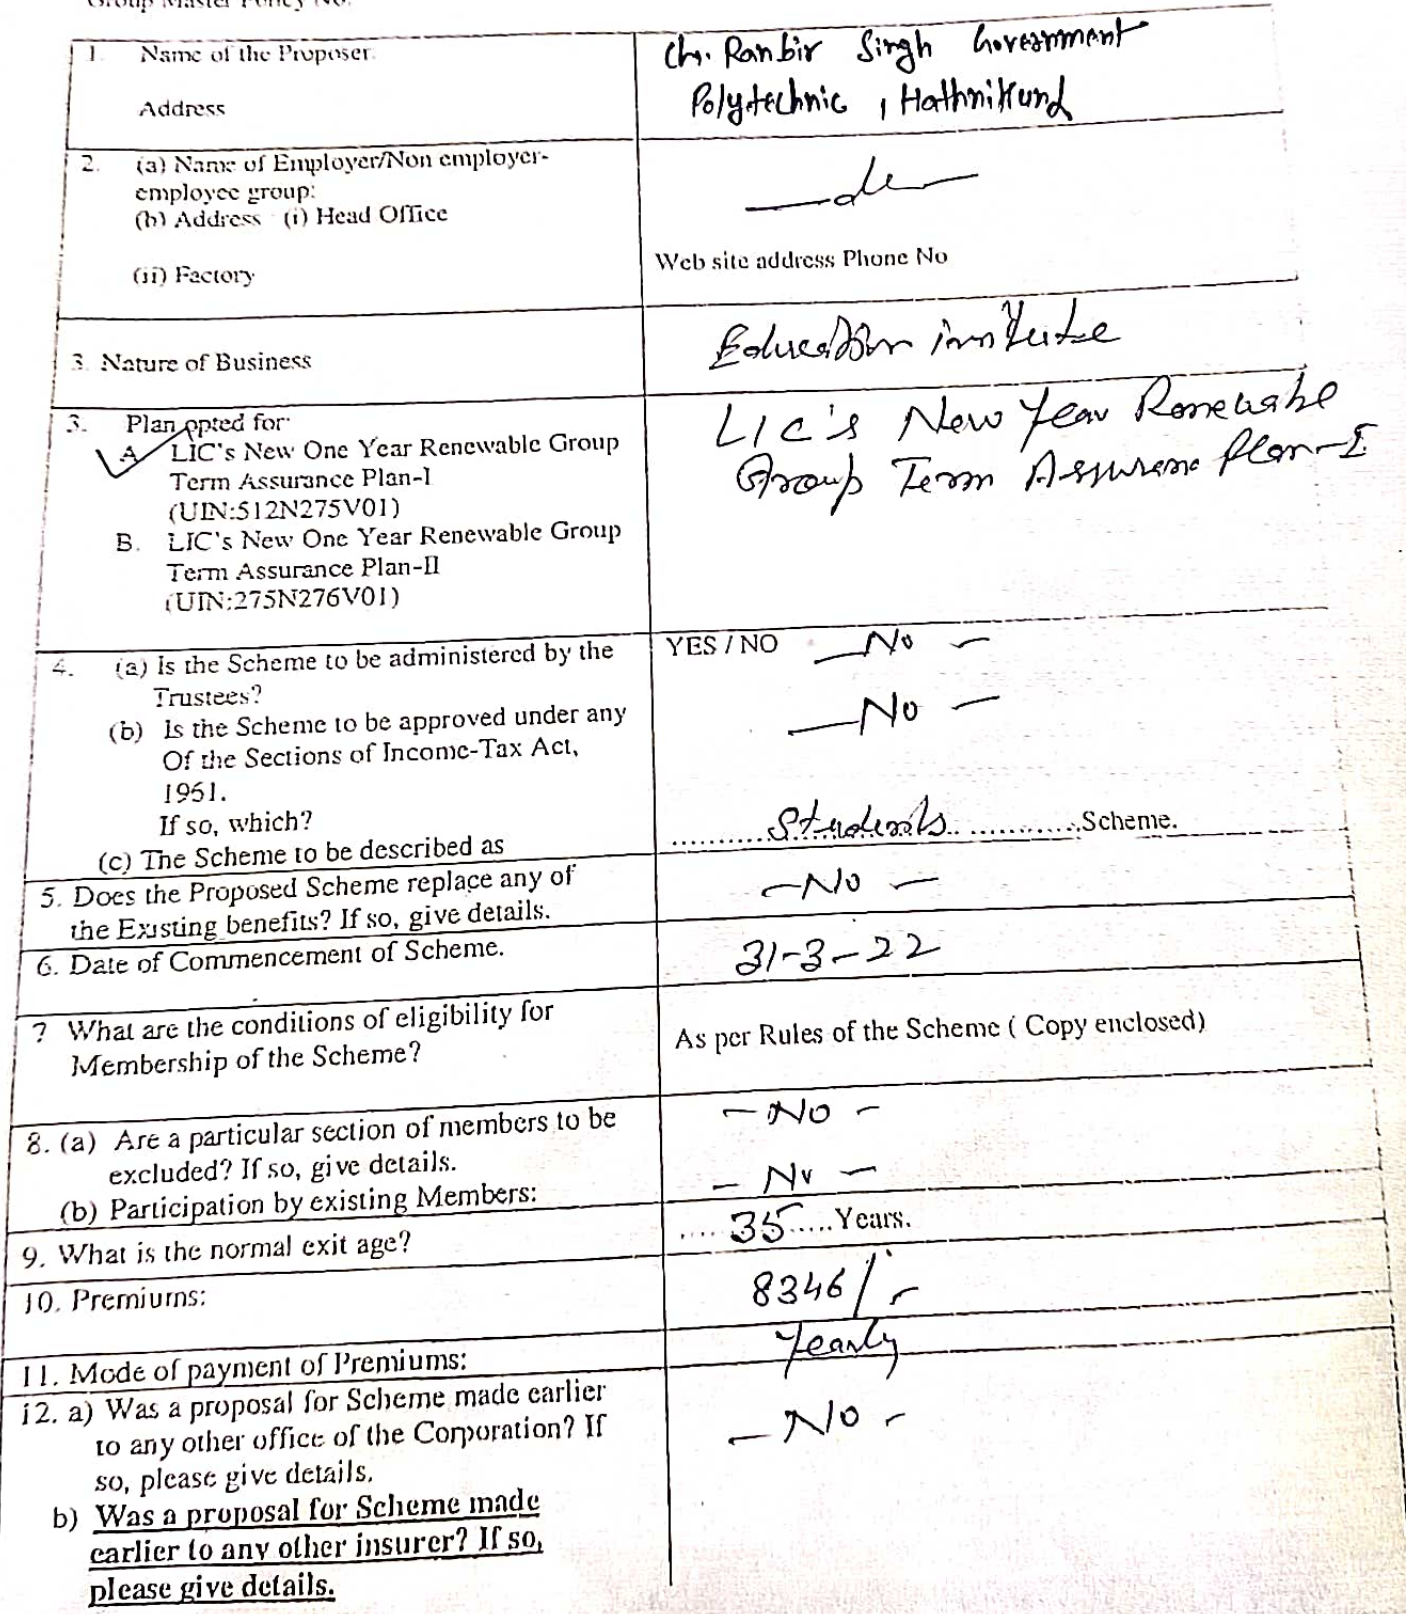 Group Master Policy No.
1. Name of the Proposer. Ch. Ranbir Singh Government
Address Polytechnic, Hathnikund
2. (a) Name of Employer/Non employer-
employee group:
(b) Address (i) Head Office
(ii) Factory Web site address Phone No
3. Nature of Business Education institute
3. Plan opted for: LIC's New Year Renewable
A. LIC's New One Year Renewable Group Group Term Assurance Plan-I
Term Assurance Plan-I
(UIN:512N275V01)
B. LIC's New One Year Renewable Group
Term Assurance Plan-II
(UIN:275N276V01)
4. (a) Is the Scheme to be administered by the YES / NO — No —
Trustees?
(b) Is the Scheme to be approved under any — No —
Of the Sections of Income-Tax Act,
1961.
If so, which?
(c) The Scheme to be described as ..........Students.. ............Scheme.
5. Does the Proposed Scheme replace any of — No —
the Existing benefits? If so, give details.
6. Date of Commencement of Scheme. 31-3-22
7 What are the conditions of eligibility for As per Rules of the Scheme ( Copy enclosed)
Membership of the Scheme?
8. (a) Are a particular section of members to be — No —
excluded? If so, give details.
(b) Participation by existing Members: — No —
9. What is the normal exit age? ....35.....Years.
10. Premiums: 8346/-
11. Mode of payment of Premiums: Yearly
12. a) Was a proposal for Scheme made earlier — No —
to any other office of the Corporation? If
so, please give details.
b) Was a proposal for Scheme made
earlier to any other insurer? If so,
please give details.